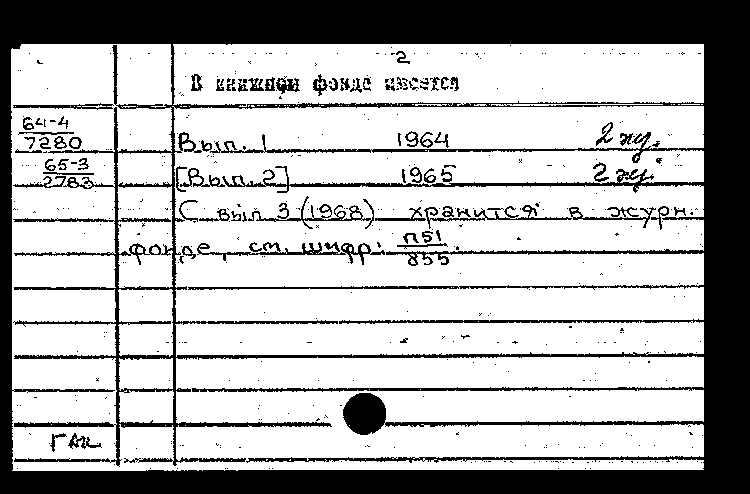 2
В книжном фонде имеется
64-4
7280 Вып. 1 1964 2 экз.
65-3
2783 [Вып. 2] 1965 2 экз.
С вып 3 (1968) хранится в журн.
фонде, см. шифр: П51
855.